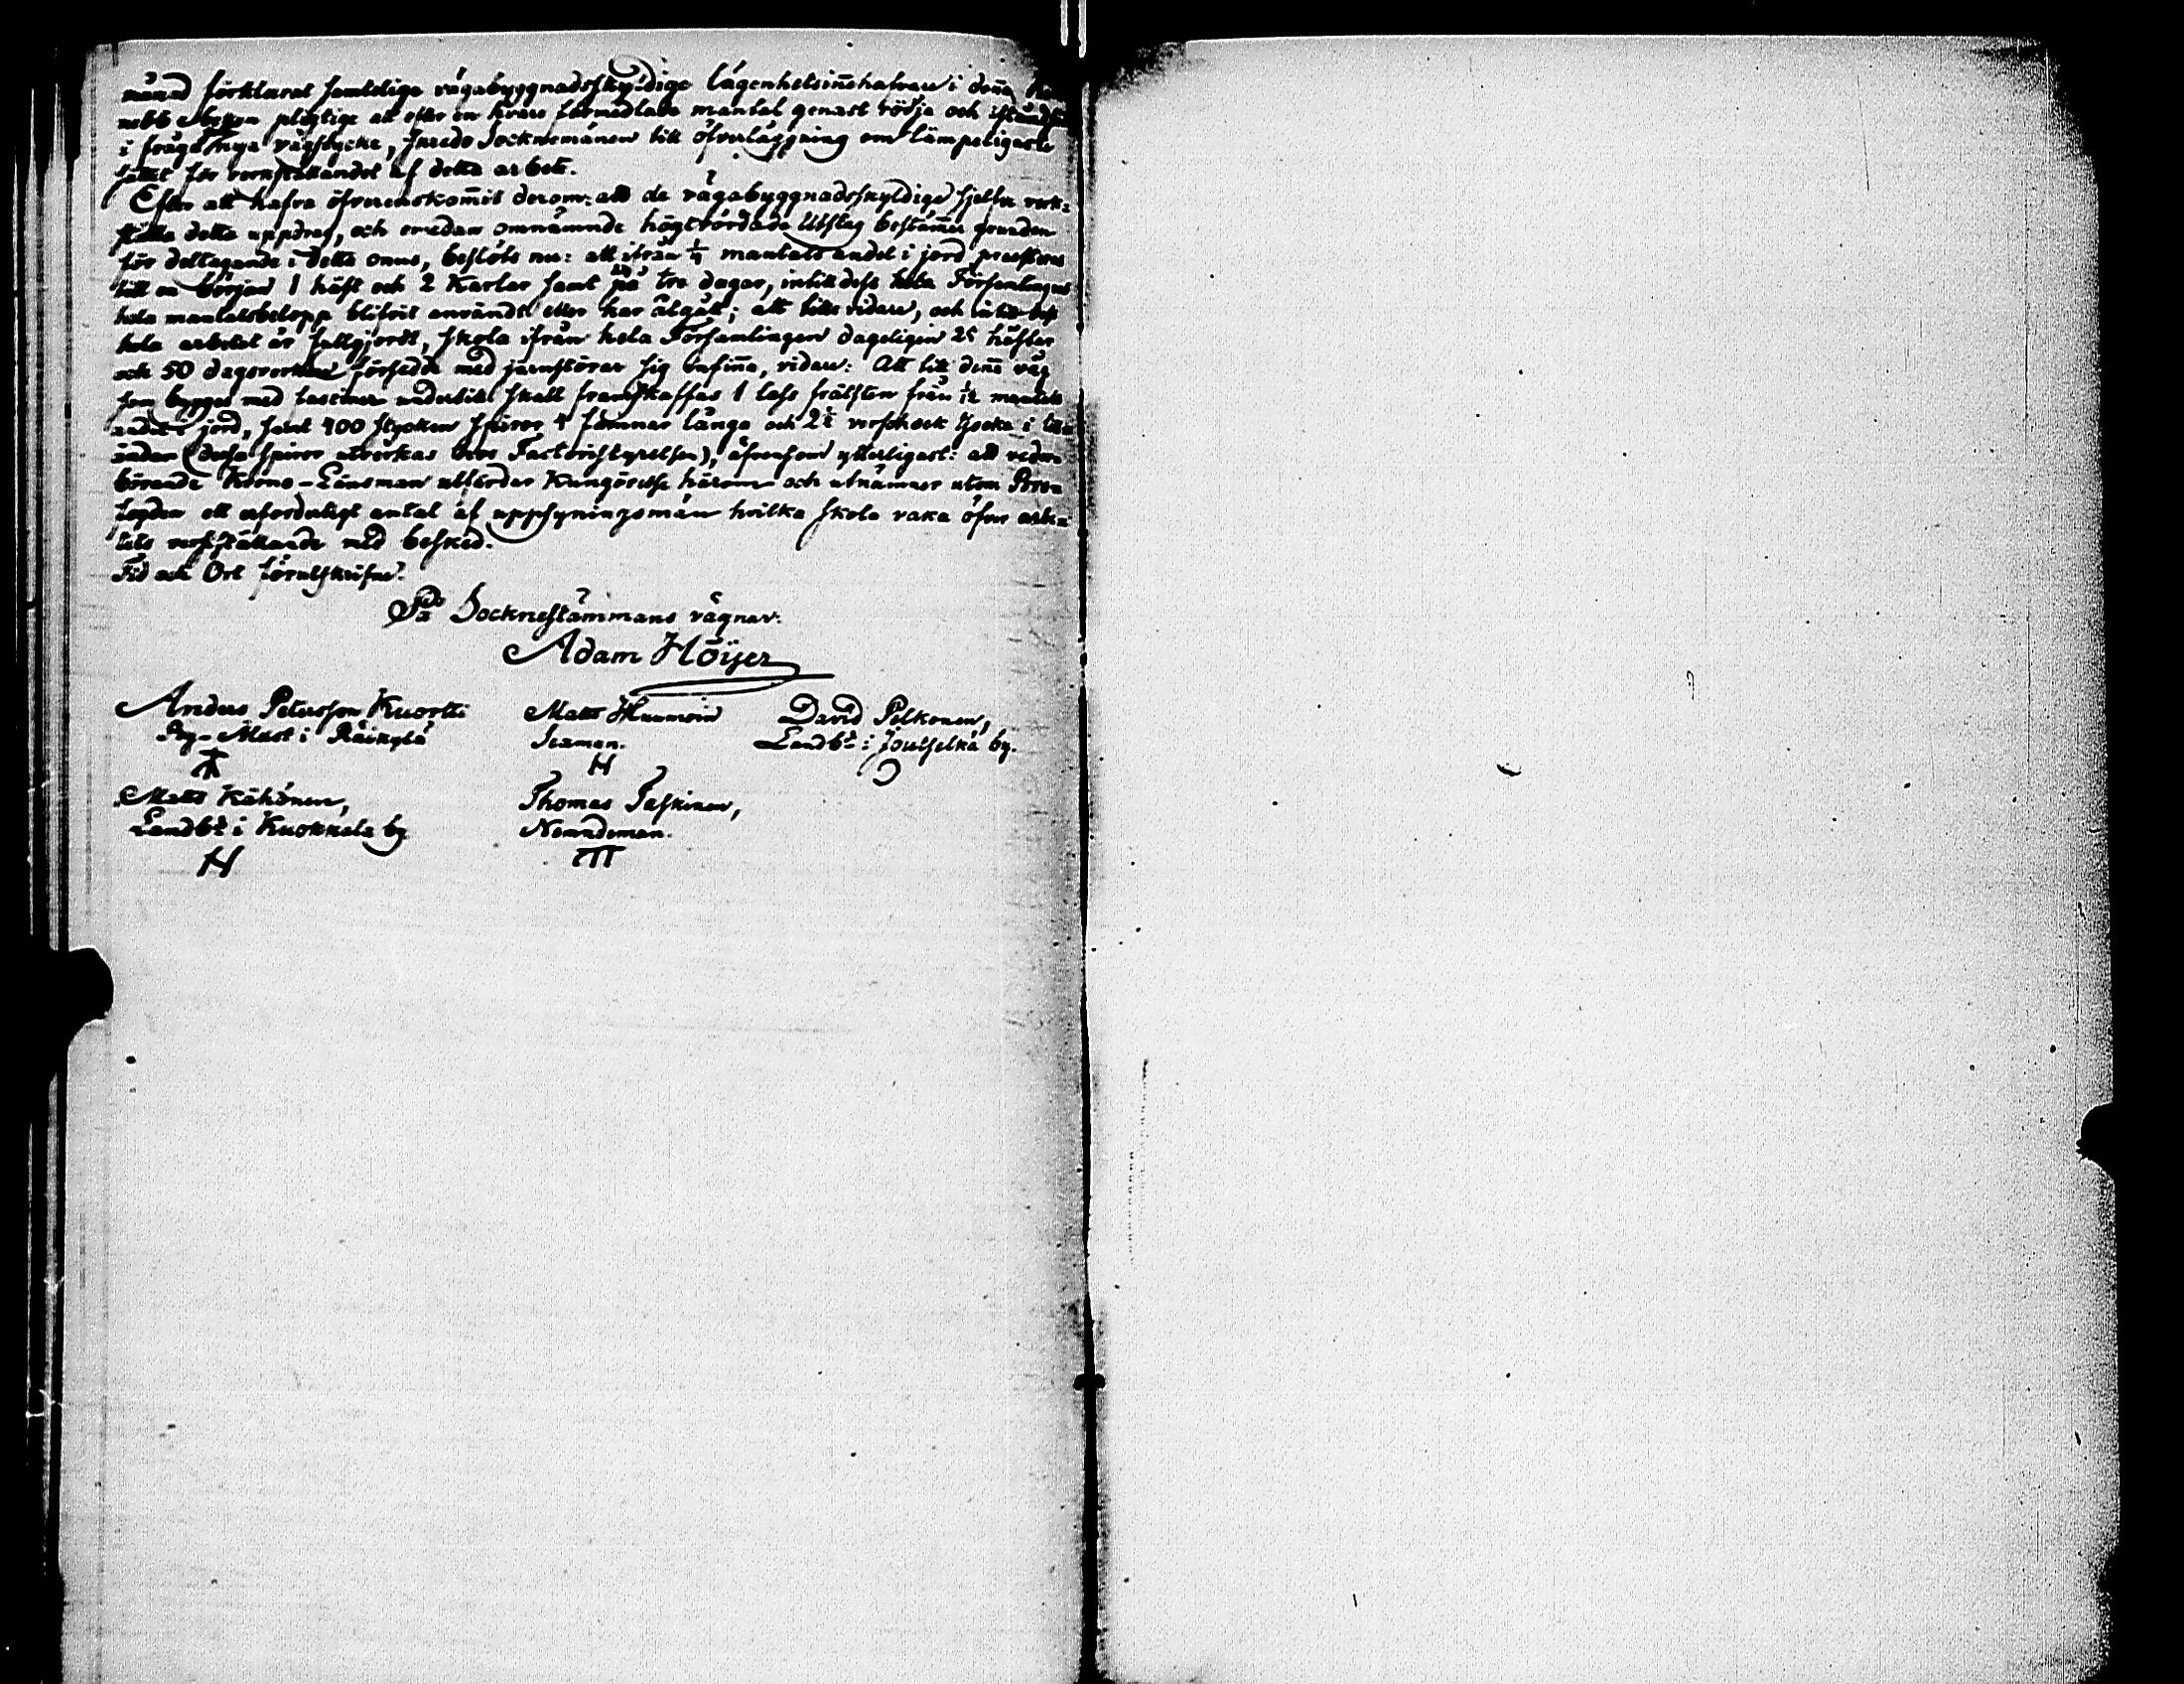 månd förklarat samtelige vägabyggnadsskyldige lägenhetsinnehafvare i denna
plegtige att efter en hvars förmedlade mantal genast rödja och iståndsä
i fråga nya vägstycke, Socknemänen till öfverläggning om lämpeligaste
sättet för verkställandet af detta arbete.
Efter att hafva öfverenskom̄it derom: att de vägabyggnadsskyldige sjelfve verk-
ställa detta uppdrag, och emedan omnämnde högtvördade Utslag bestäm̄er grunden
för deltagande i detta onus, beslöts nu: att ifrån ¼ mantals andel i jord presteras
till en början 1 häst och 2 Karlar samt på tre dagar, intill dess hela Församlingens
hela mantalsbelopp blifvit användt eller har åtgått; att vidare, och intill dess
hela arbetet är fullgjordt, skola ifrån hela Församlingen dageligen 25 hästar
och 50 dagsverken försedde med jernstörar sig infin̄a, vidare: Att till den̄a väg
som bygges med fasciner underlik skall framskaffas 1 lass från ½ mantals
andel i jord, samt 400 stycken spiror 4 famnar långa och 2½ verschock tjocka i
ändan (dessa spiror utverkas hos Factoristyrelsen), äfvensom ytterligast: att veder-
börande Krono-Länsman utfärdar Kungörelse härom och utnämner utom
ett erforderligt antal af uppsyningsmän hvilka skola vaka öfver arbe-
tets verkställande med besked.
Tid och Ort förutskrifne.
På Socknestämmans vägnar:
Adam Höijer
Anders Petersson Kuortti Matts Hunmoin David Pelkonen,
By-Mäst i Räikylä Sexman. Landbd i Joutselkä by.
Matts Kähönen, Thomas Taskinen,
Landbd i Kuokkala by Nemndeman.